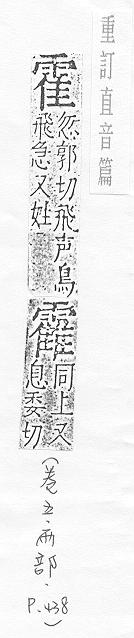 重訂直音篇
霍
忽郭切飛声鳥
飛急又姓
靃
同上又
息委切
(卷五·雨部·P.438)